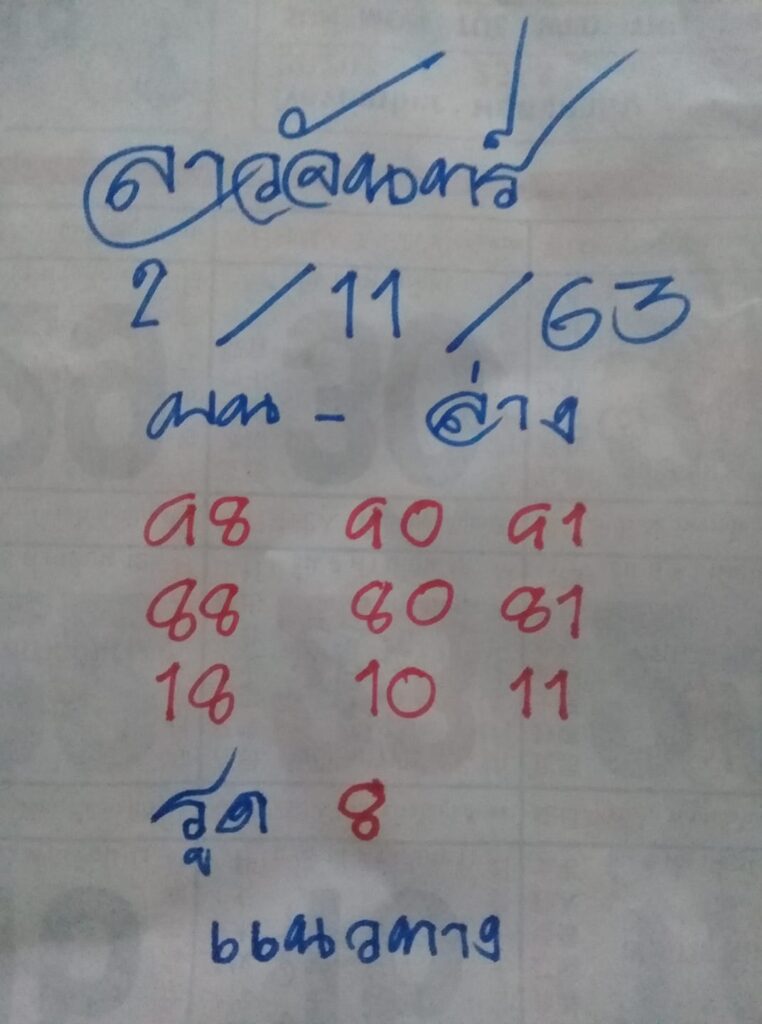 สาวจันทร์
2/11/63
บน - ล่าง
98 90 91
88 80 81
18 10 11
รูด 8
แนวทาง